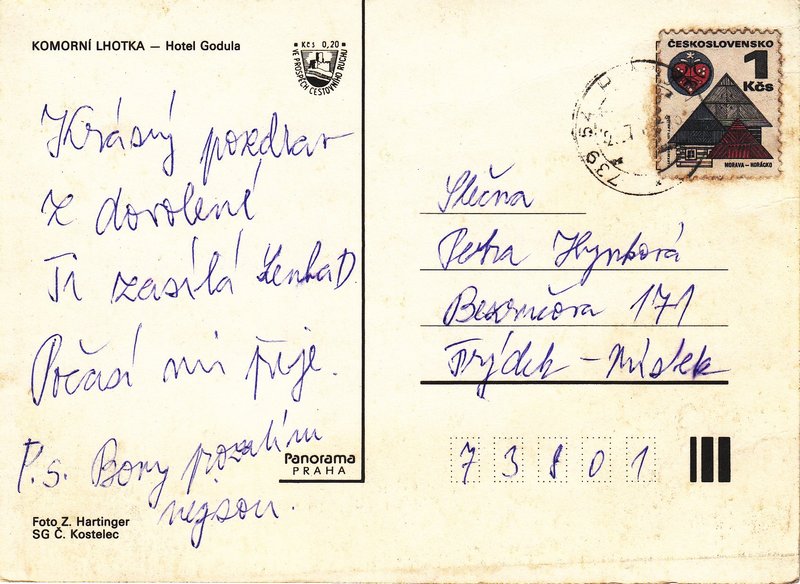 KOMORNÍ LHOTKA — Hotel Godula
Kčs 0,20
VE PROSPĚCH CESTOVNÍHO RUCHU
ČESKOSLOVENSKO
1
Kčs
MORAVA – HORÁCKO
739 54
Krásný pozdrav
z dovolené
Ti zasílá Lenka D.
Počasí mi přeje.
P.s. Bony pozatím
nejsou.
Slečna
Petra Hynková
Bezručova 171
Frýdek – Místek
73801
Panorama
PRAHA
Foto Z. Hartinger
SG Č. Kostelec